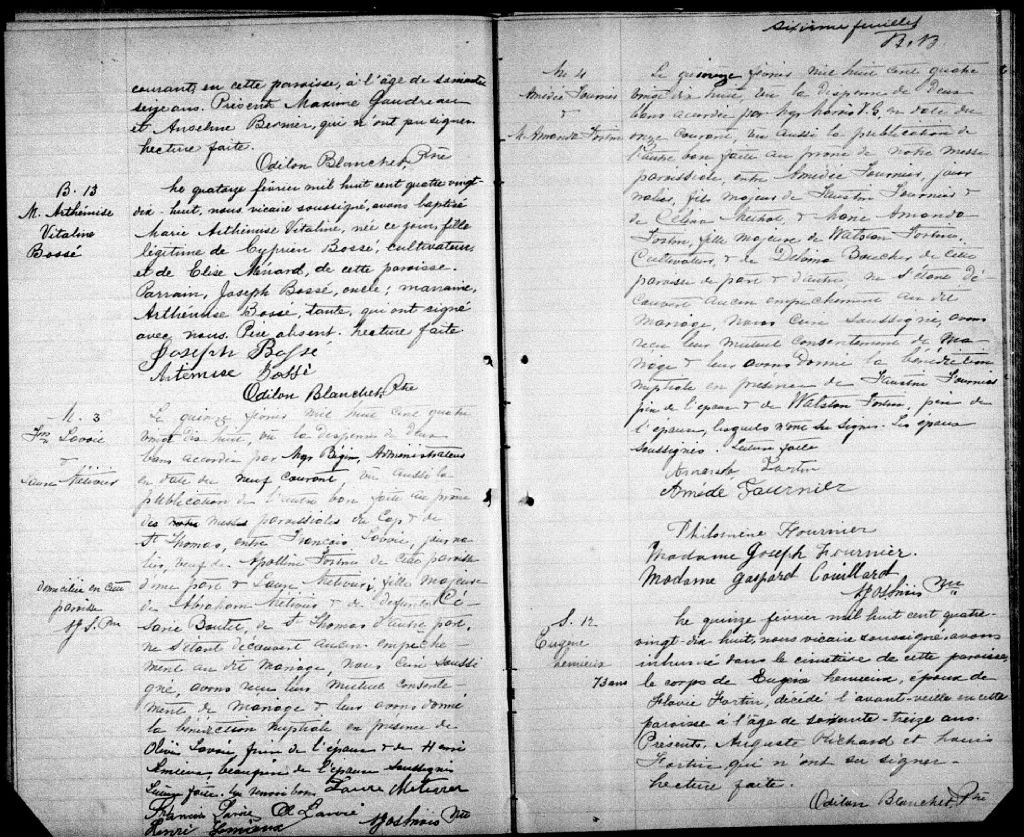 courant, en cette paroisse, à l'âge de soixante
seize ans. Présent Maxime Gaudreau
et Anselme Bernier, qui n'ont pu signer.
Lecture faite.
Odilon Blanchet, Ptre
B. 13
M. Arthémise
Vitaline
Bossé
Le quatorze février mil huit cent quatre vingt-
dix-huit, nous vicaire soussigné, avons baptisé
Marie Arthémise Vitaline, née ce jour, fille
légitime de Cyprien Bossé, cultivateur,
et de Elise Ménard, de cette paroisse.
Parrain, Joseph Bossé, oncle; marraine,
Arthémise Bossé, tante, qui ont signé
avec nous. Père absent. Lecture faite
Joseph Bossé
Artémise Bossé
Odilon Blanchet, Ptre
M. 3
Frs Lavoie
&
Laure Métivier
Le quinze février mil huit cent quatre
vingt dix huit, vu la dispense de deux
bans accordée par Mgr Bégin, Administrateur
en date du neuf courant, vu aussi la
publication de l'autre ban faite au prône
des messes paroissiales du Cap & de
St Thomas, entre François Lavoie, journa
lier, veuf de Apolline Fortin de cette paroisse
d'une part & Laure Métivier, fille majeure
domiciliée en cette
paroisse
de Abraham Métivier & de défunte Cé
sarie Boutet, de St Thomas d'autre part,
ne s'étant découvert aucun empêche-
ment au dit mariage, nous curé soussi
gné, avons reçu leur mutuel consente-
ment de mariage & leur avons donné
la bénédiction nuptiale en présence de
Olivier Lavoie, frère de l'époux & de Henri
Lemieux, beau-frère de l'épouse soussignés
Lecture faite. Laure Métivier
Francois Lavoie O Lavoie
Henri Lemieux
Sixième feuillet
B. B.
M. 4
Amédée Fournier
&
M. Amanda Fortin
Le quinze février mil huit cent quatre
vingt dix huit, vu la dispense de deux
bans accordée par Mgr Marois V.G. en date du
onze courant, vu aussi la publication de
l'autre ban faite au prône de notre messe
paroissiale, entre Amédée Fournier, jour
nalier, fils majeur de Faustin Fournier &
de Célina Méthot, & Marie Amanda
Fortin, fille majeure de Walston Fortin,
Cultivateur, & de Delima Boucher de cette
paroisse de part & d'autre, ne s'étant dé
couvert aucun empêchement au dit
mariage, nous curé soussigné, avons
reçu leur mutuel consentement de ma
riage & leur avons donné la bénédiction
nuptiale en présence de Faustin Fournier
père de l'époux & de Walston Fortin, père de
l'épouse, lesquels n'ont su signer. Les époux
soussignés. Lecture faite
Amanda Fortin
Amédé Fournier
Philomène Fournier
Madame Joseph Fournier.
Madame Gaspard Couillard
S. 12
Eugène
Lemieux
73 ans
Le quinze février mil huit cent quatre-
vingt-dix-huit, nous vicaire soussigné, avons
inhumé dans le cimetière de cette paroisse,
le corps de Eugène Lemieux, époux de
Flavie Fortin, décédé l'avant-veille en cette
paroisse à l'âge de soixante-treize ans.
Présents, Auguste Richard et Louis
Fortin qui n'ont su signer.
Lecture faite.
Odilon Blanchet, Ptre